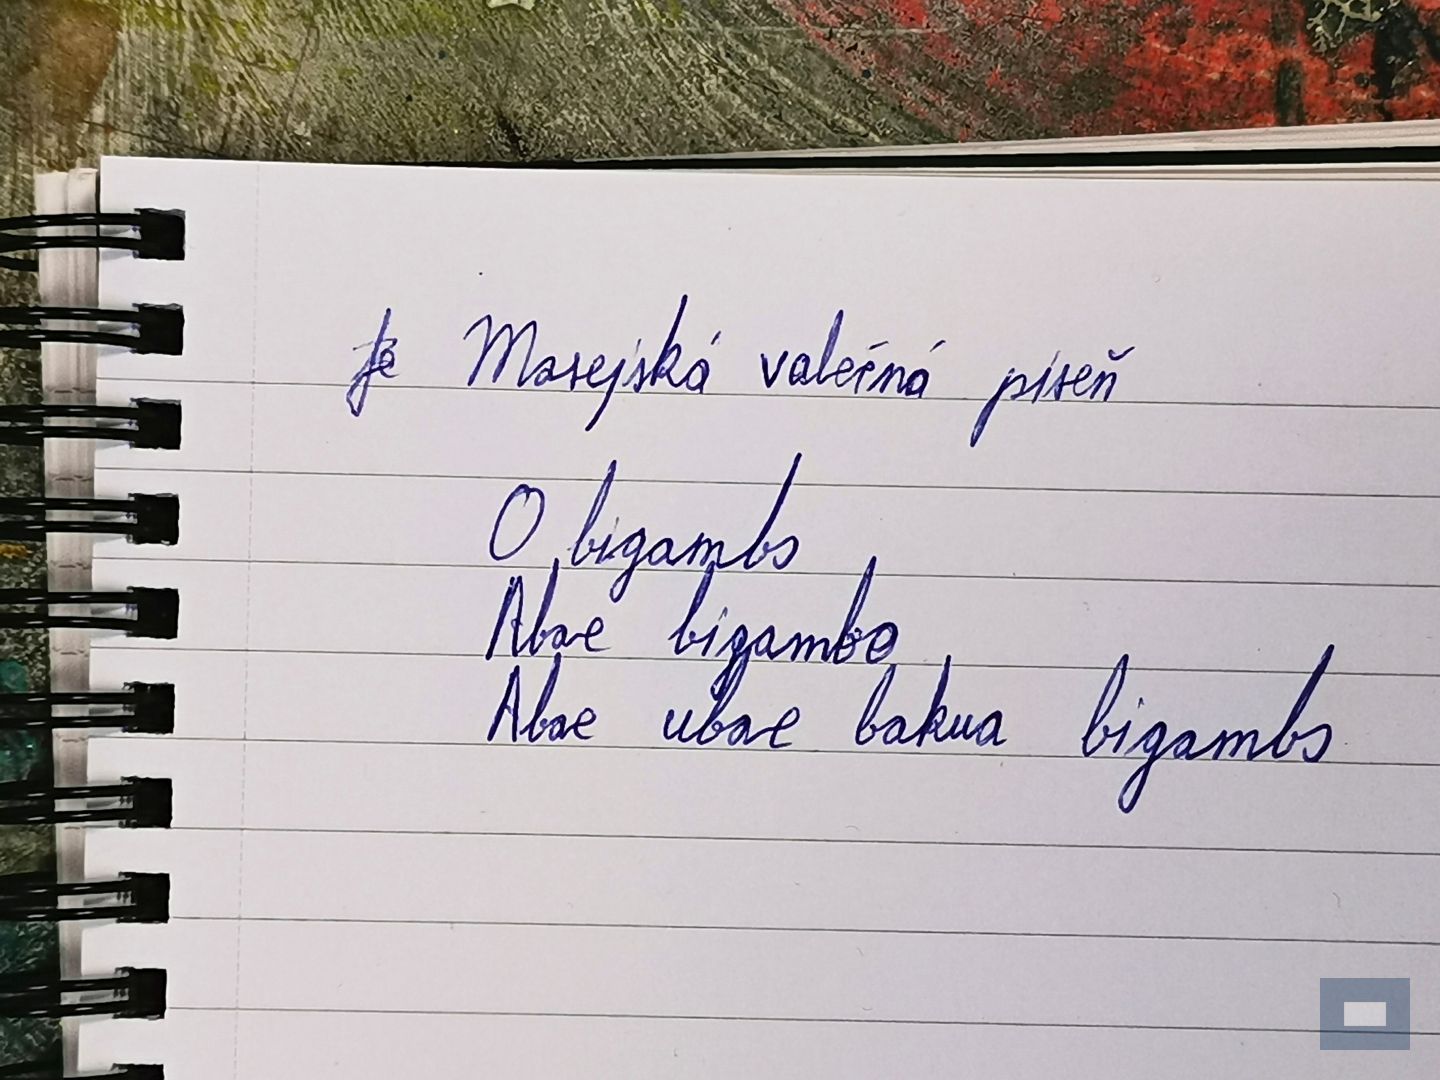 Masejská valečná píseň
O bigambo
Abae bigambo
Abae ubae bakua bigambo